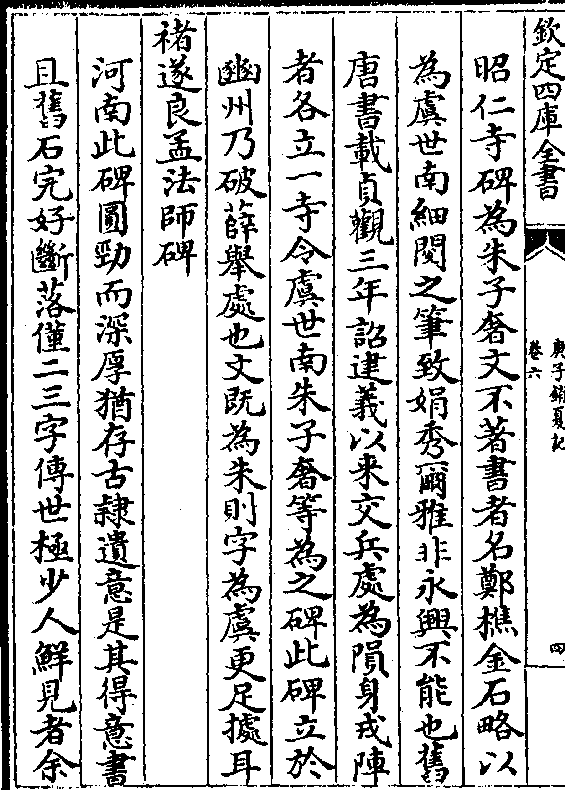 欽定四庫全書
庚子銷夏記
卷六
四
昭仁寺碑為朱子奢文不著書者名鄭樵金石略以
為虞世南細閱之筆致娟秀爾雅非永興不能也舊
唐書載貞觀三年詔建義以來交兵處為隕身戎陣
者各立一寺令虞世南朱子奢等為之碑此碑立於
豳州乃破薛舉處也文既為朱則字為虞更足據耳
禇遂良孟法師碑
河南此碑圓勁而深厚猶存古隷遺意是其得意書
且舊石完好斷落僅二三字傳世極少人鮮見者余